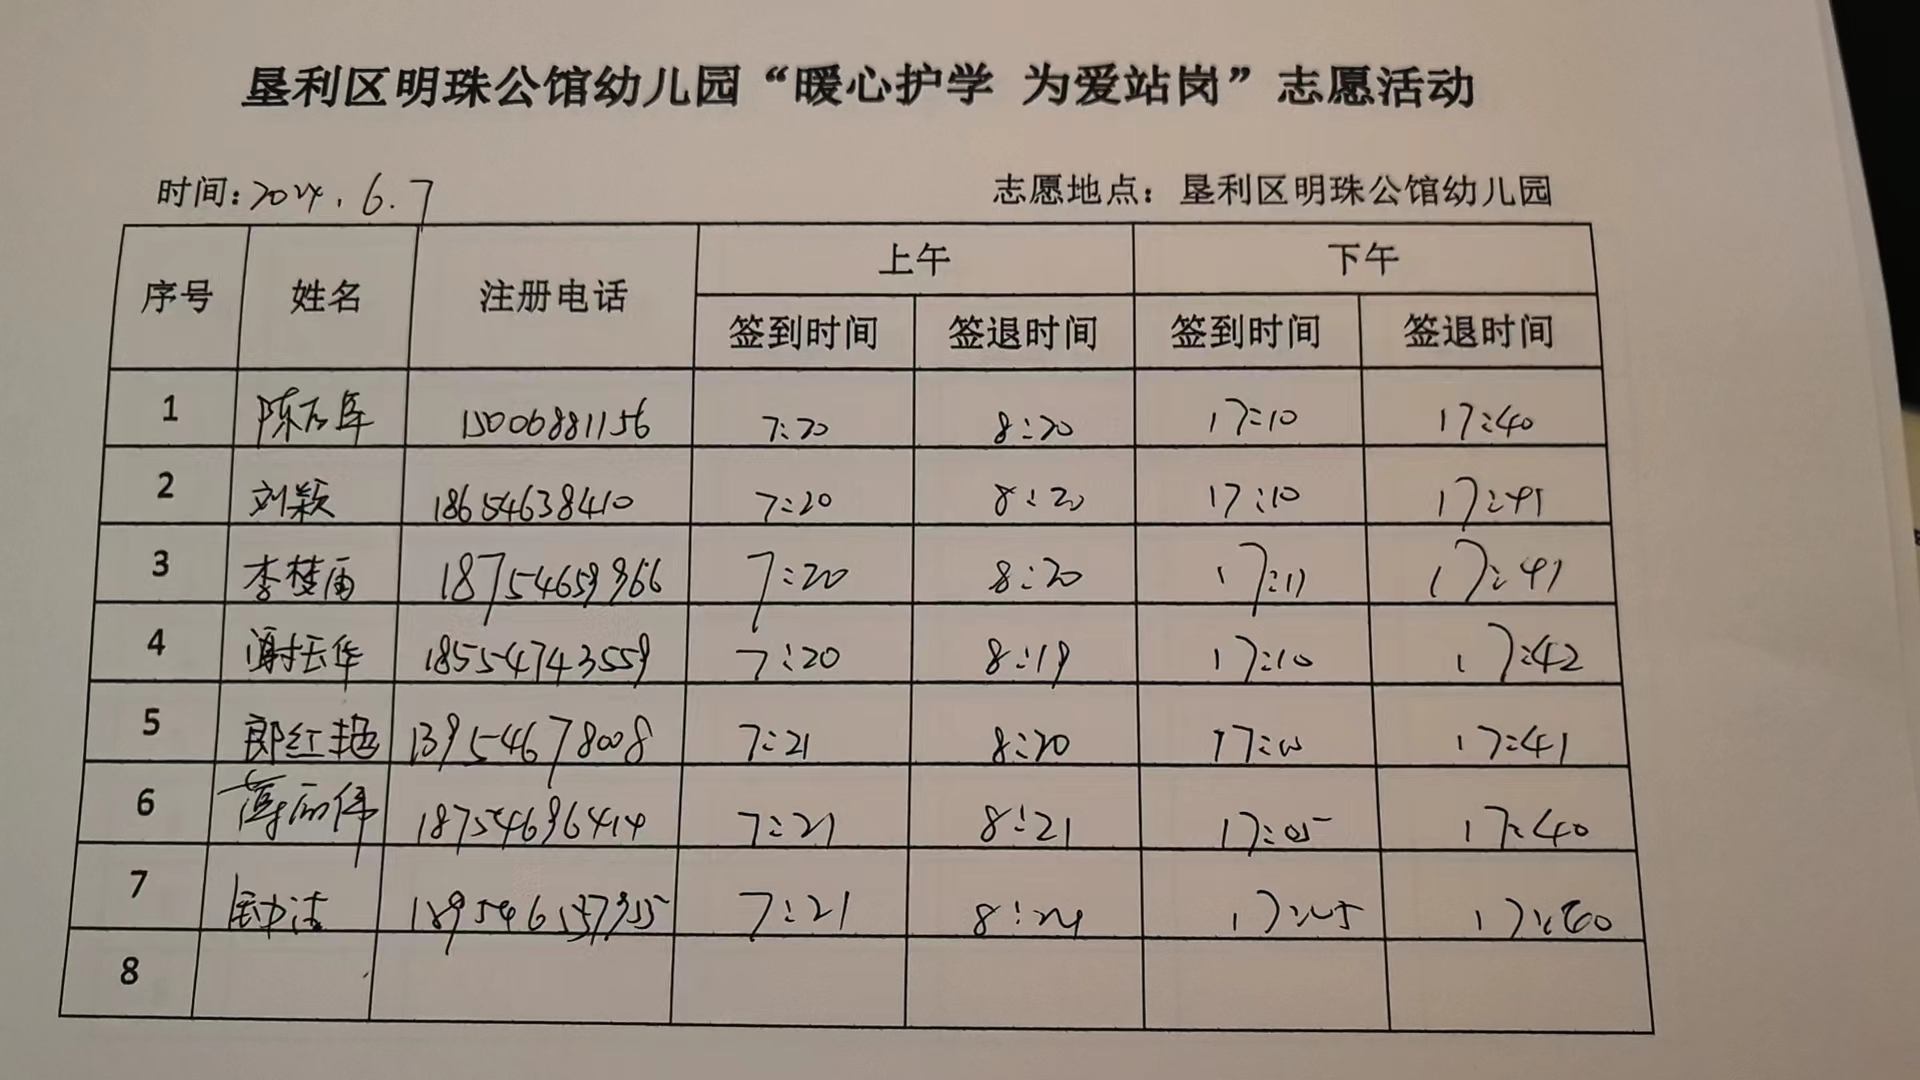 垦利区明珠公馆幼儿园“暖心护学 为爱站岗”志愿活动
时间:2024.6.7 志愿地点：垦利区明珠公馆幼儿园
序号 姓名 注册电话 上午 下午
签到时间 签退时间 签到时间 签退时间
1 15006881156 7:20 8:20 17:10 17:40
2 刘颖 18654638410 7:20 8:20 17:10 17:41
3 18754659366 7:20 8:20 17:11 17:41
4 谢云华 18554743559 7:20 8:19 17:10 17:42
5 郎红艳 13954678008 7:21 8:20 17:41
6 薄丽伟 18754696414 7:21 8:21 17:05 17:40
7 7:21 17:05 17:40
8